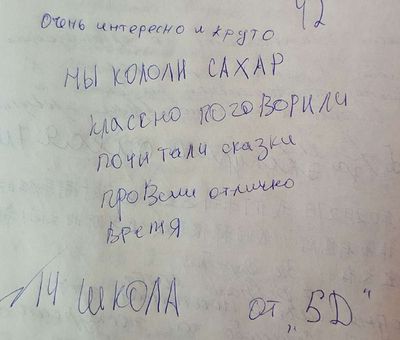 42
Очень интересно и круто
МЫ КОЛОЛИ САХАР
классно поговорили
почитали сказки
провели отлично
время
14 ШКОЛА от „5D“